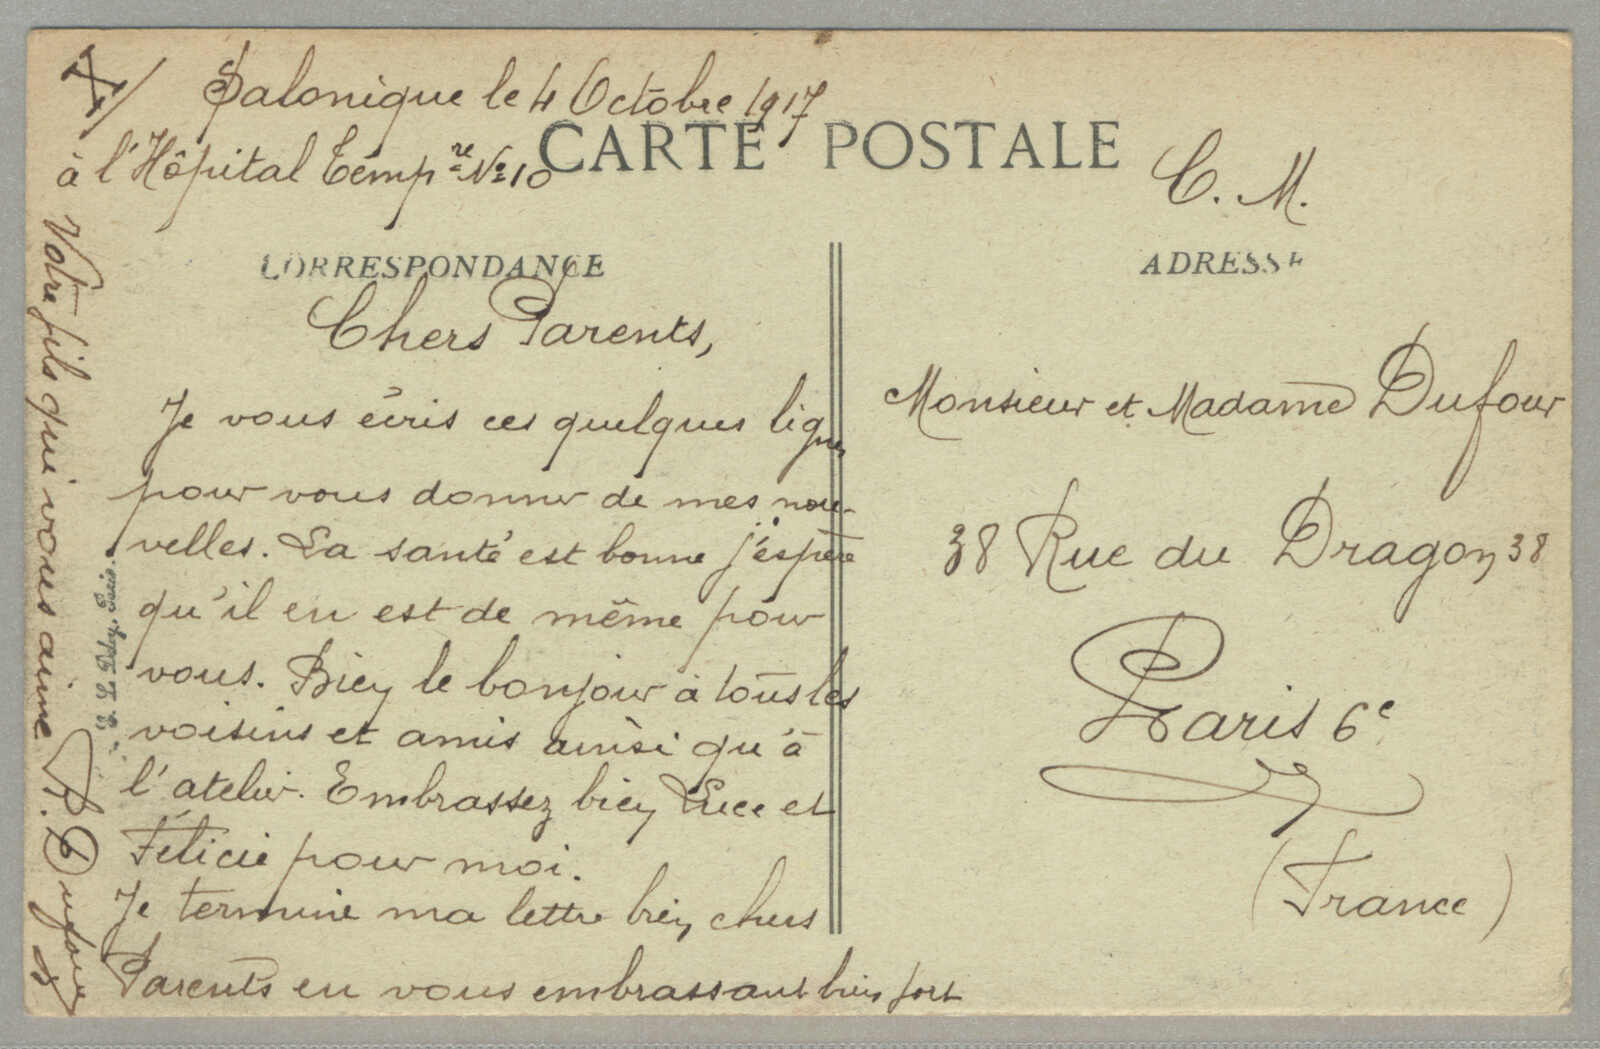 X/ Salonique le 4 Octobre 1917
à l'Hôpital Temp re No 10
CARTE POSTALE
C. M.
CORRESPONDANCE
Chers Parents,
Je vous écris ces quelques lignes
pour vous donner de mes nou-
velles. La santé est bonne j'espère
qu'il en est de même pour
vous. Bien le bonjour à tous les
voisins et amis ainsi qu'à
l'atelier. Embrassez bien Luce et
Félicie pour moi.
Je termine ma lettre bien chers
Parents en vous embrassant bien fort
Votre fils qui vous aime
P. Dufour
ADRESSE
Monsieur et Madame Dufour
38 Rue du Dragon 38
Paris 6e
(France)